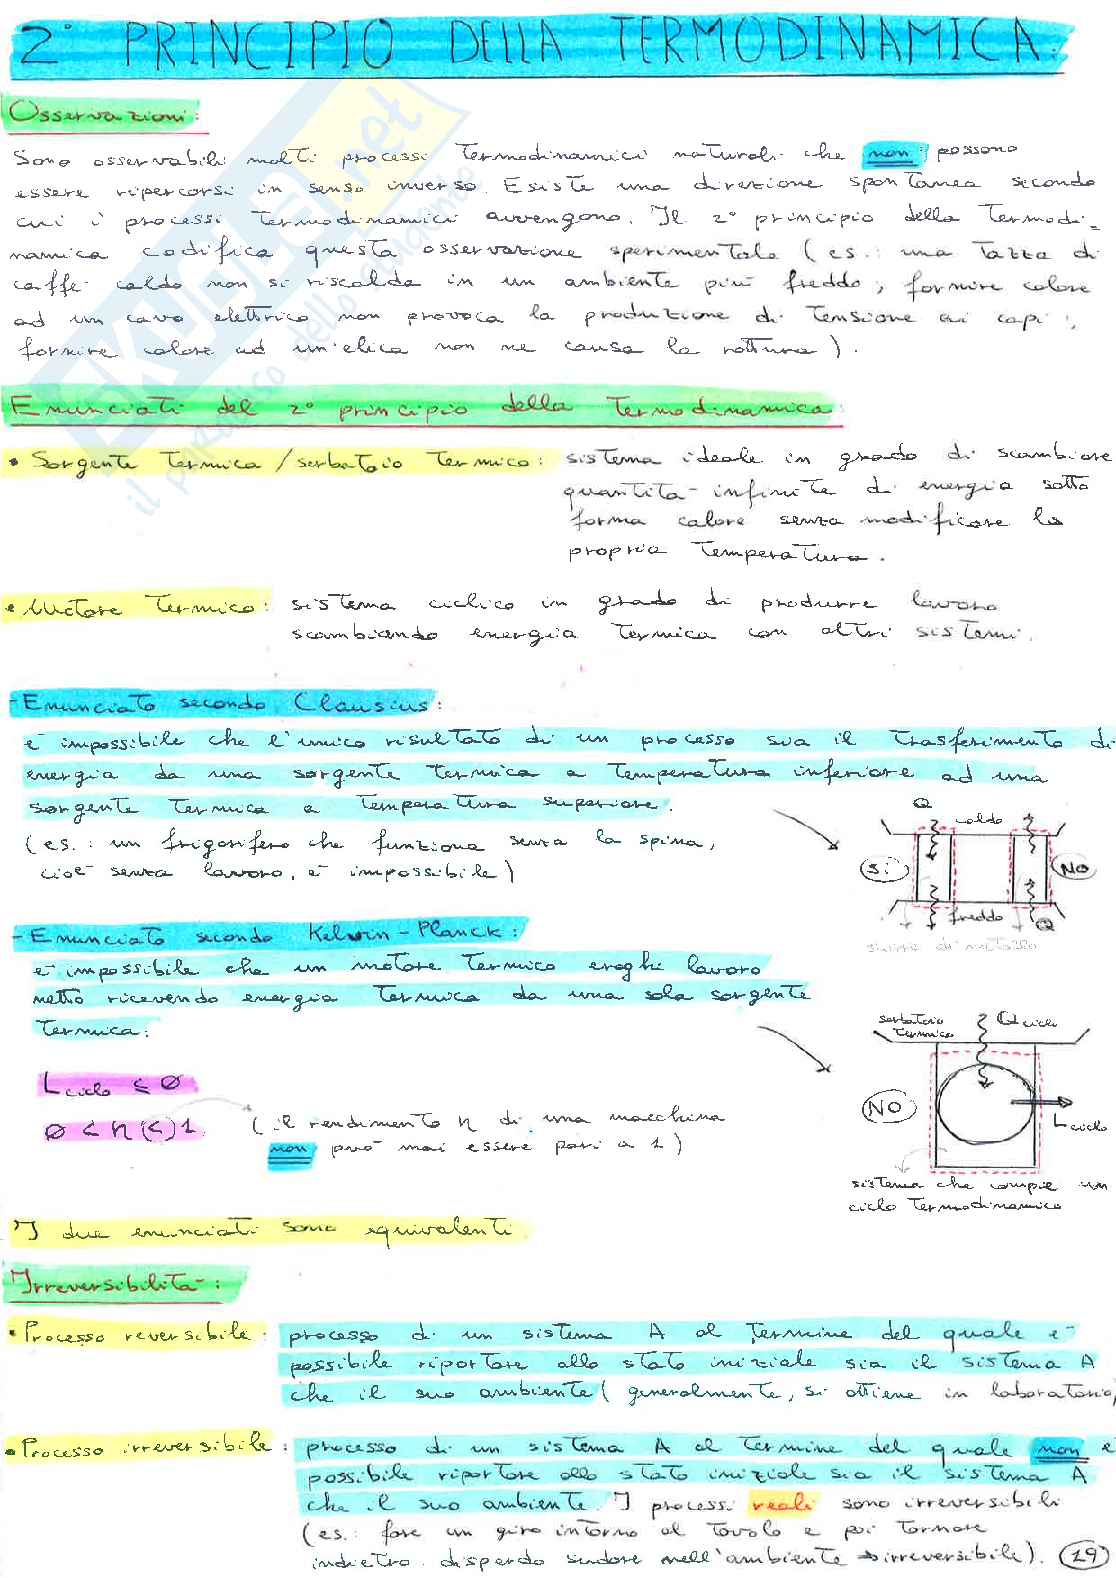 2° PRINCIPIO DELLA TERMODINAMICA:
Osservazioni:
Sono osservabili molti processi termodinamici naturali che non possono
essere ripercorsi in senso inverso. Esiste una direzione spontanea secondo
cui i processi termodinamici avvengono. Il 2° principio della termodi=
namica codifica questa osservazione sperimentale (es.: una tazza di
caffè caldo non si riscalda in un ambiente più freddo; fornire calore
ad un cavo elettrico non provoca la produzione di tensione ai capi;
fornire calore ad un'elica non ne causa la rottura).
Enunciati del 2° principio della termodinamica:
• Sorgente termica/serbatoio termico: sistema ideale in grado di scambiare
quantità infinite di energia sotto
forma calore senza modificare la
propria temperatura.
• Motore termico: sistema ciclico in grado di produrre lavoro
scambiando energia termica con altri sistemi.
- Enunciato secondo Clausius:
è impossibile che l'unico risultato di un processo sia il trasferimento di
energia da una sorgente termica a temperatura inferiore ad una
sorgente termica a temperatura superiore.
(es.: un frigorifero che funziona senza la spina,
cioè senza lavoro, è impossibile)
Q caldo
SÌ NO
freddo Q
- Enunciato secondo Kelvin-Planck:
è impossibile che un motore termico eroghi lavoro
netto ricevendo energia termica da una sola sorgente
termica:
serbatoio termico Q ciclo
NO
L ciclo
sistema che compie un
ciclo termodinamico
L ciclo ≤ 0
0 < η (<) 1 (il rendimento η di una macchina
non può mai essere pari a 1)
I due enunciati sono equivalenti.
Irreversibilità:
• Processo reversibile: processo di un sistema A al termine del quale è
possibile riportare allo stato iniziale sia il sistema A
che il suo ambiente (generalmente, si ottiene in laboratorio)
• Processo irreversibile: processo di un sistema A al termine del quale non è
possibile riportare allo stato iniziale sia il sistema A
che il suo ambiente. I processi reali sono irreversibili
(es.: fare un giro intorno al tavolo e poi tornare
indietro disperdo sudore nell'ambiente → irreversibile). 29